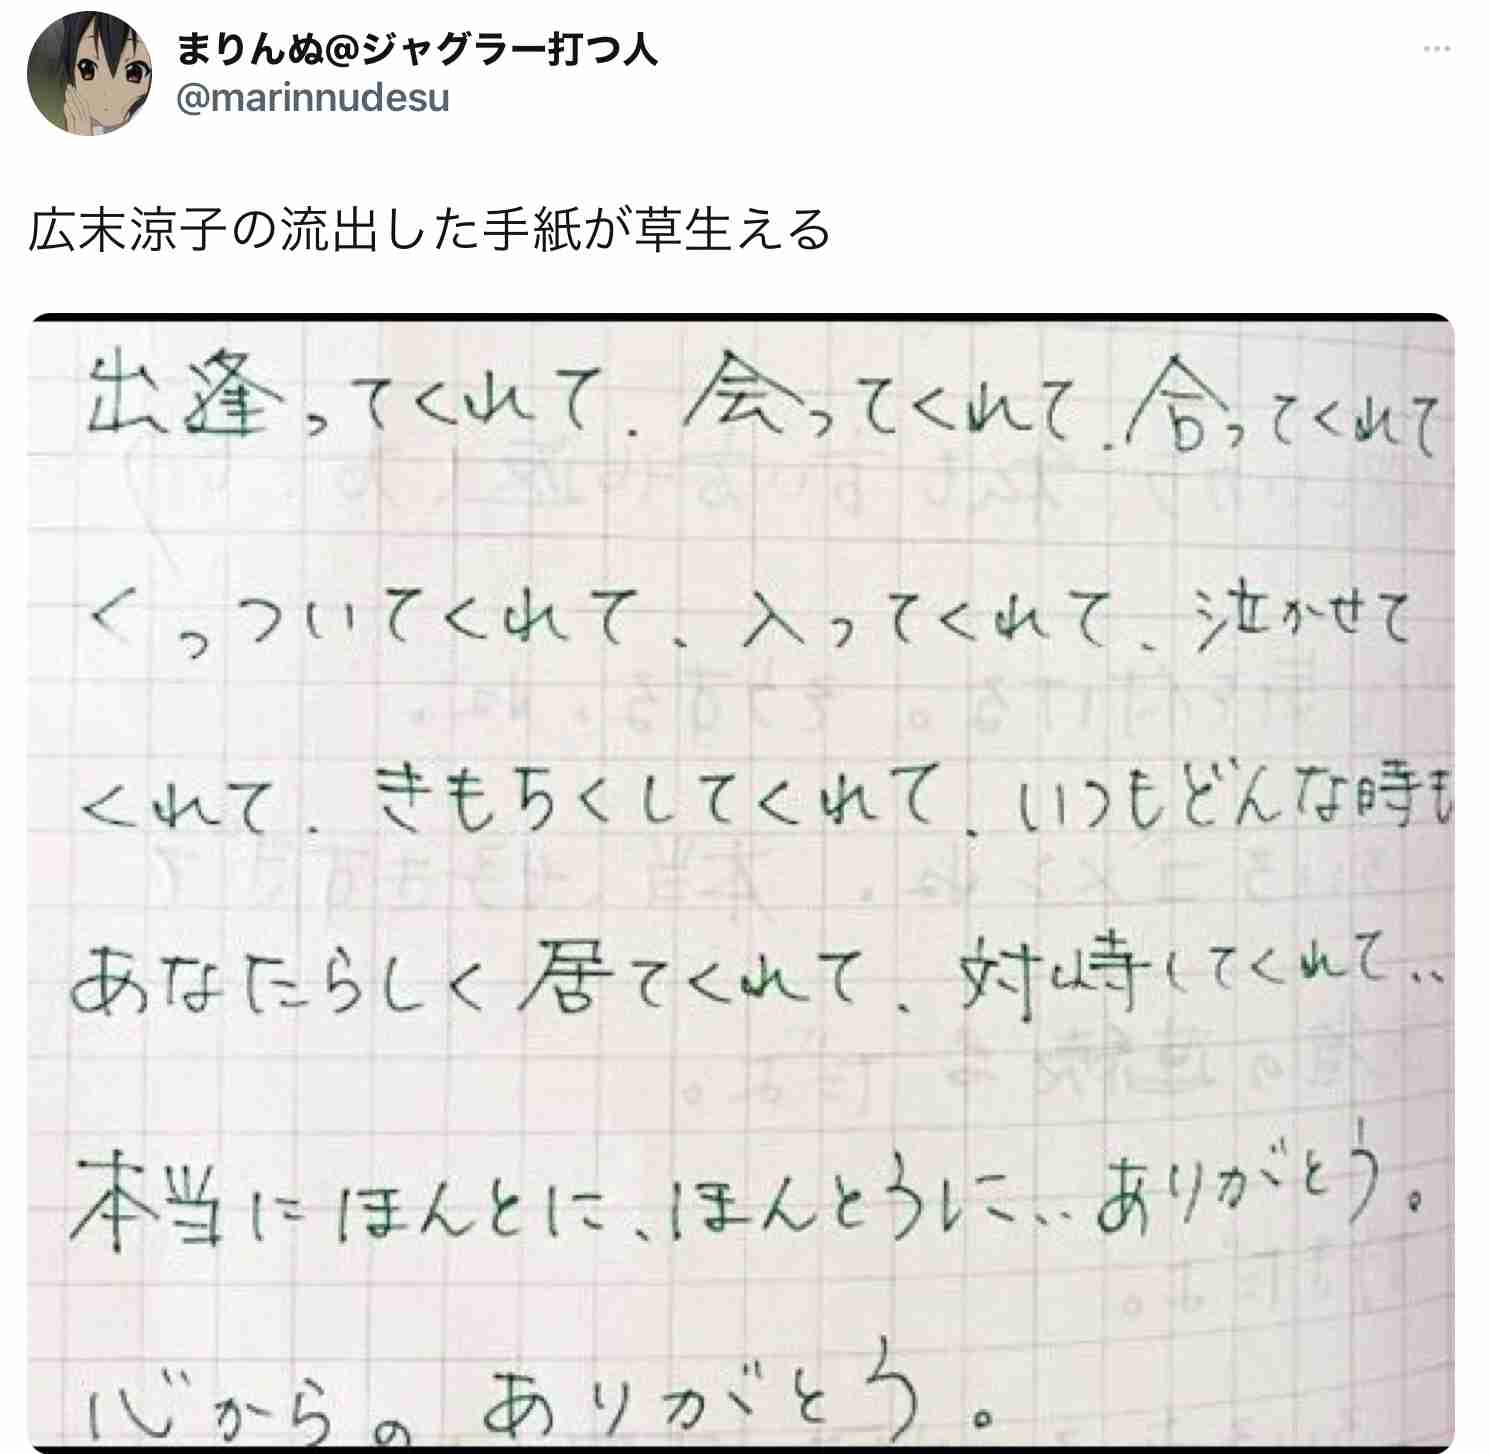 まりんぬ@ジャグラー打つ人
@marinnudesu
広末涼子の流出した手紙が草生える
出逢ってくれて、会ってくれて、合ってくれて
くっついてくれて、入ってくれて、泣かせて
くれて、きもちくしてくれて、いつもどんな時も
あなたらしく居てくれて、対峙してくれて..
本当にほんとに、ほんとうに...ありがとう。
心からの ありがとう。